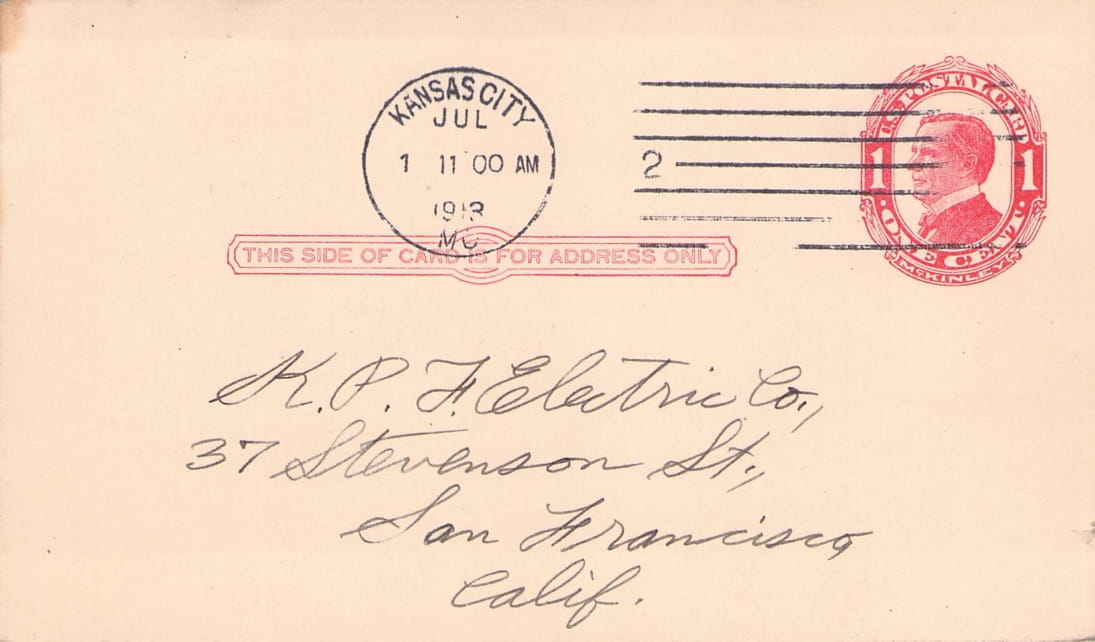 KANSAS CITY
JUL
1 11 00 AM
1913
MO
2
U.S. POSTAL CARD
1 1
· ONE CENT ·
McKINLEY
THIS SIDE OF CARD IS FOR ADDRESS ONLY
K. P. F. Electric Co.,
37 Stevenson St.,
San Francisco
Calif.